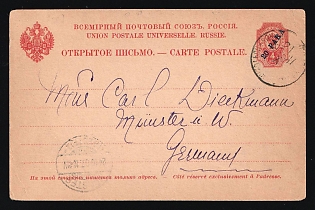 ВСЕМІРНЫЙ ПОЧТОВЫЙ СОЮЗЪ. РОССІЯ.
UNION POSTALE UNIVERSELLE. RUSSIE.
ОТКРЫТОЕ ПИСЬМО. — CARTE POSTALE.
Carl Dieckmann
Münster i. W.
Germany
На этой сторонѣ пишется только адресъ. — Côté réservé exclusivement à l'adresse.